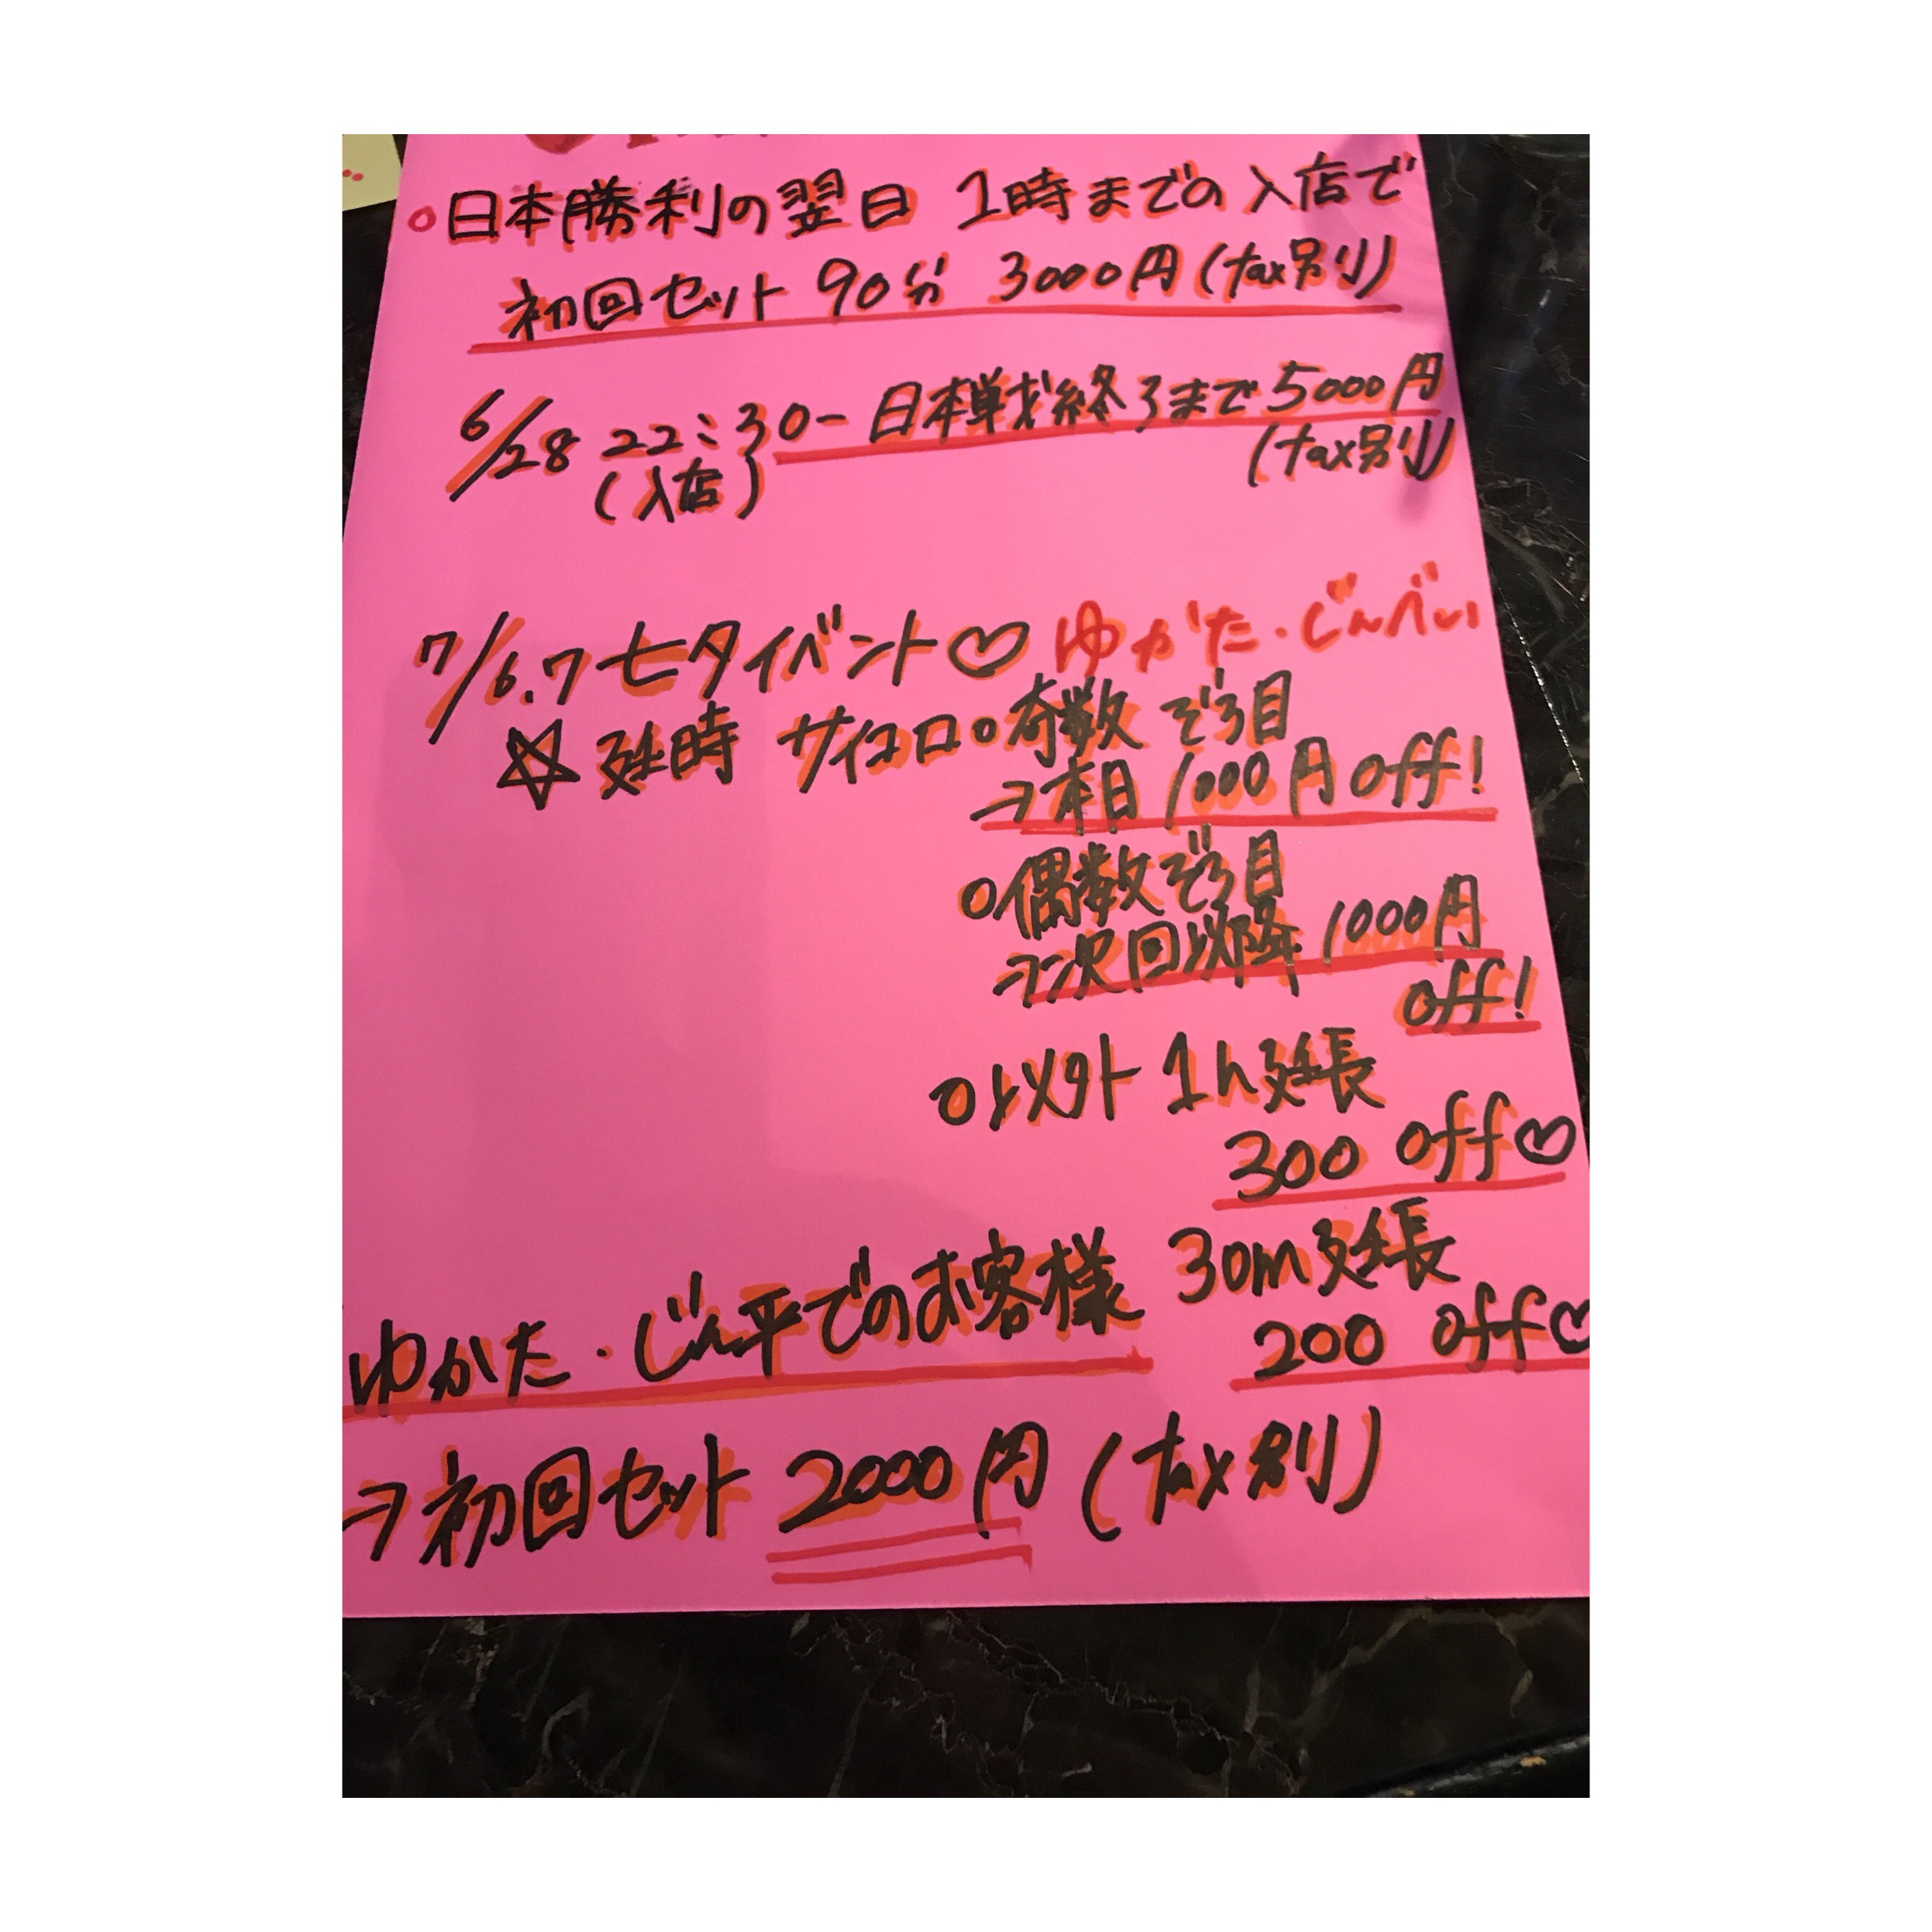 ○日本勝利の翌日 1時までの入店で
初回セット 90分 3000円(tax別)
6/28 22:30- 日本戦終了まで5000円
(入店)
(tax別)
7/6.7 七夕イベント♡ ゆかた・じんべい
☆延時 サイコロ○奇数 ぞろ目
→本日1000円off!
○偶数ぞろ目
→次回以降1000円
off!
○以外 1h延長
300 off♡
30m延長
200 off♡
ゆかた・じん平でのお客様
→初回セット 2000円(tax別)